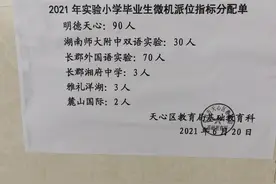 2021年实验小学毕业生微机派位指标分配单
明德天心：90人
湖南师大附中双语实验：30人
长郡外国语实验：70人
长郡湘府中学：3人
雅礼洋湖：3人
麓山国际：2人
天心区教育局基础教育科
2021年6月20日